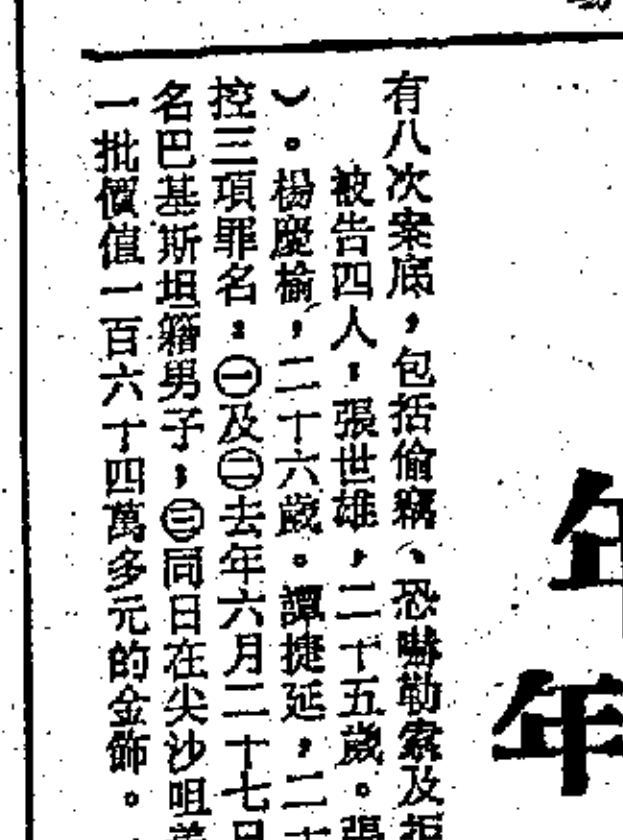 年年
有八次案底，包括偷竊、恐嚇勒索及拒
被告四人：張世雄，二十五歲。張
）。楊慶榆，二十六歲。譚捷延，二十
控三項罪名：㊀及㊁去年六月二十七日
名巴基斯坦籍男子；㊂同日在尖沙咀美
一批價值一百六十四萬多元的金飾。